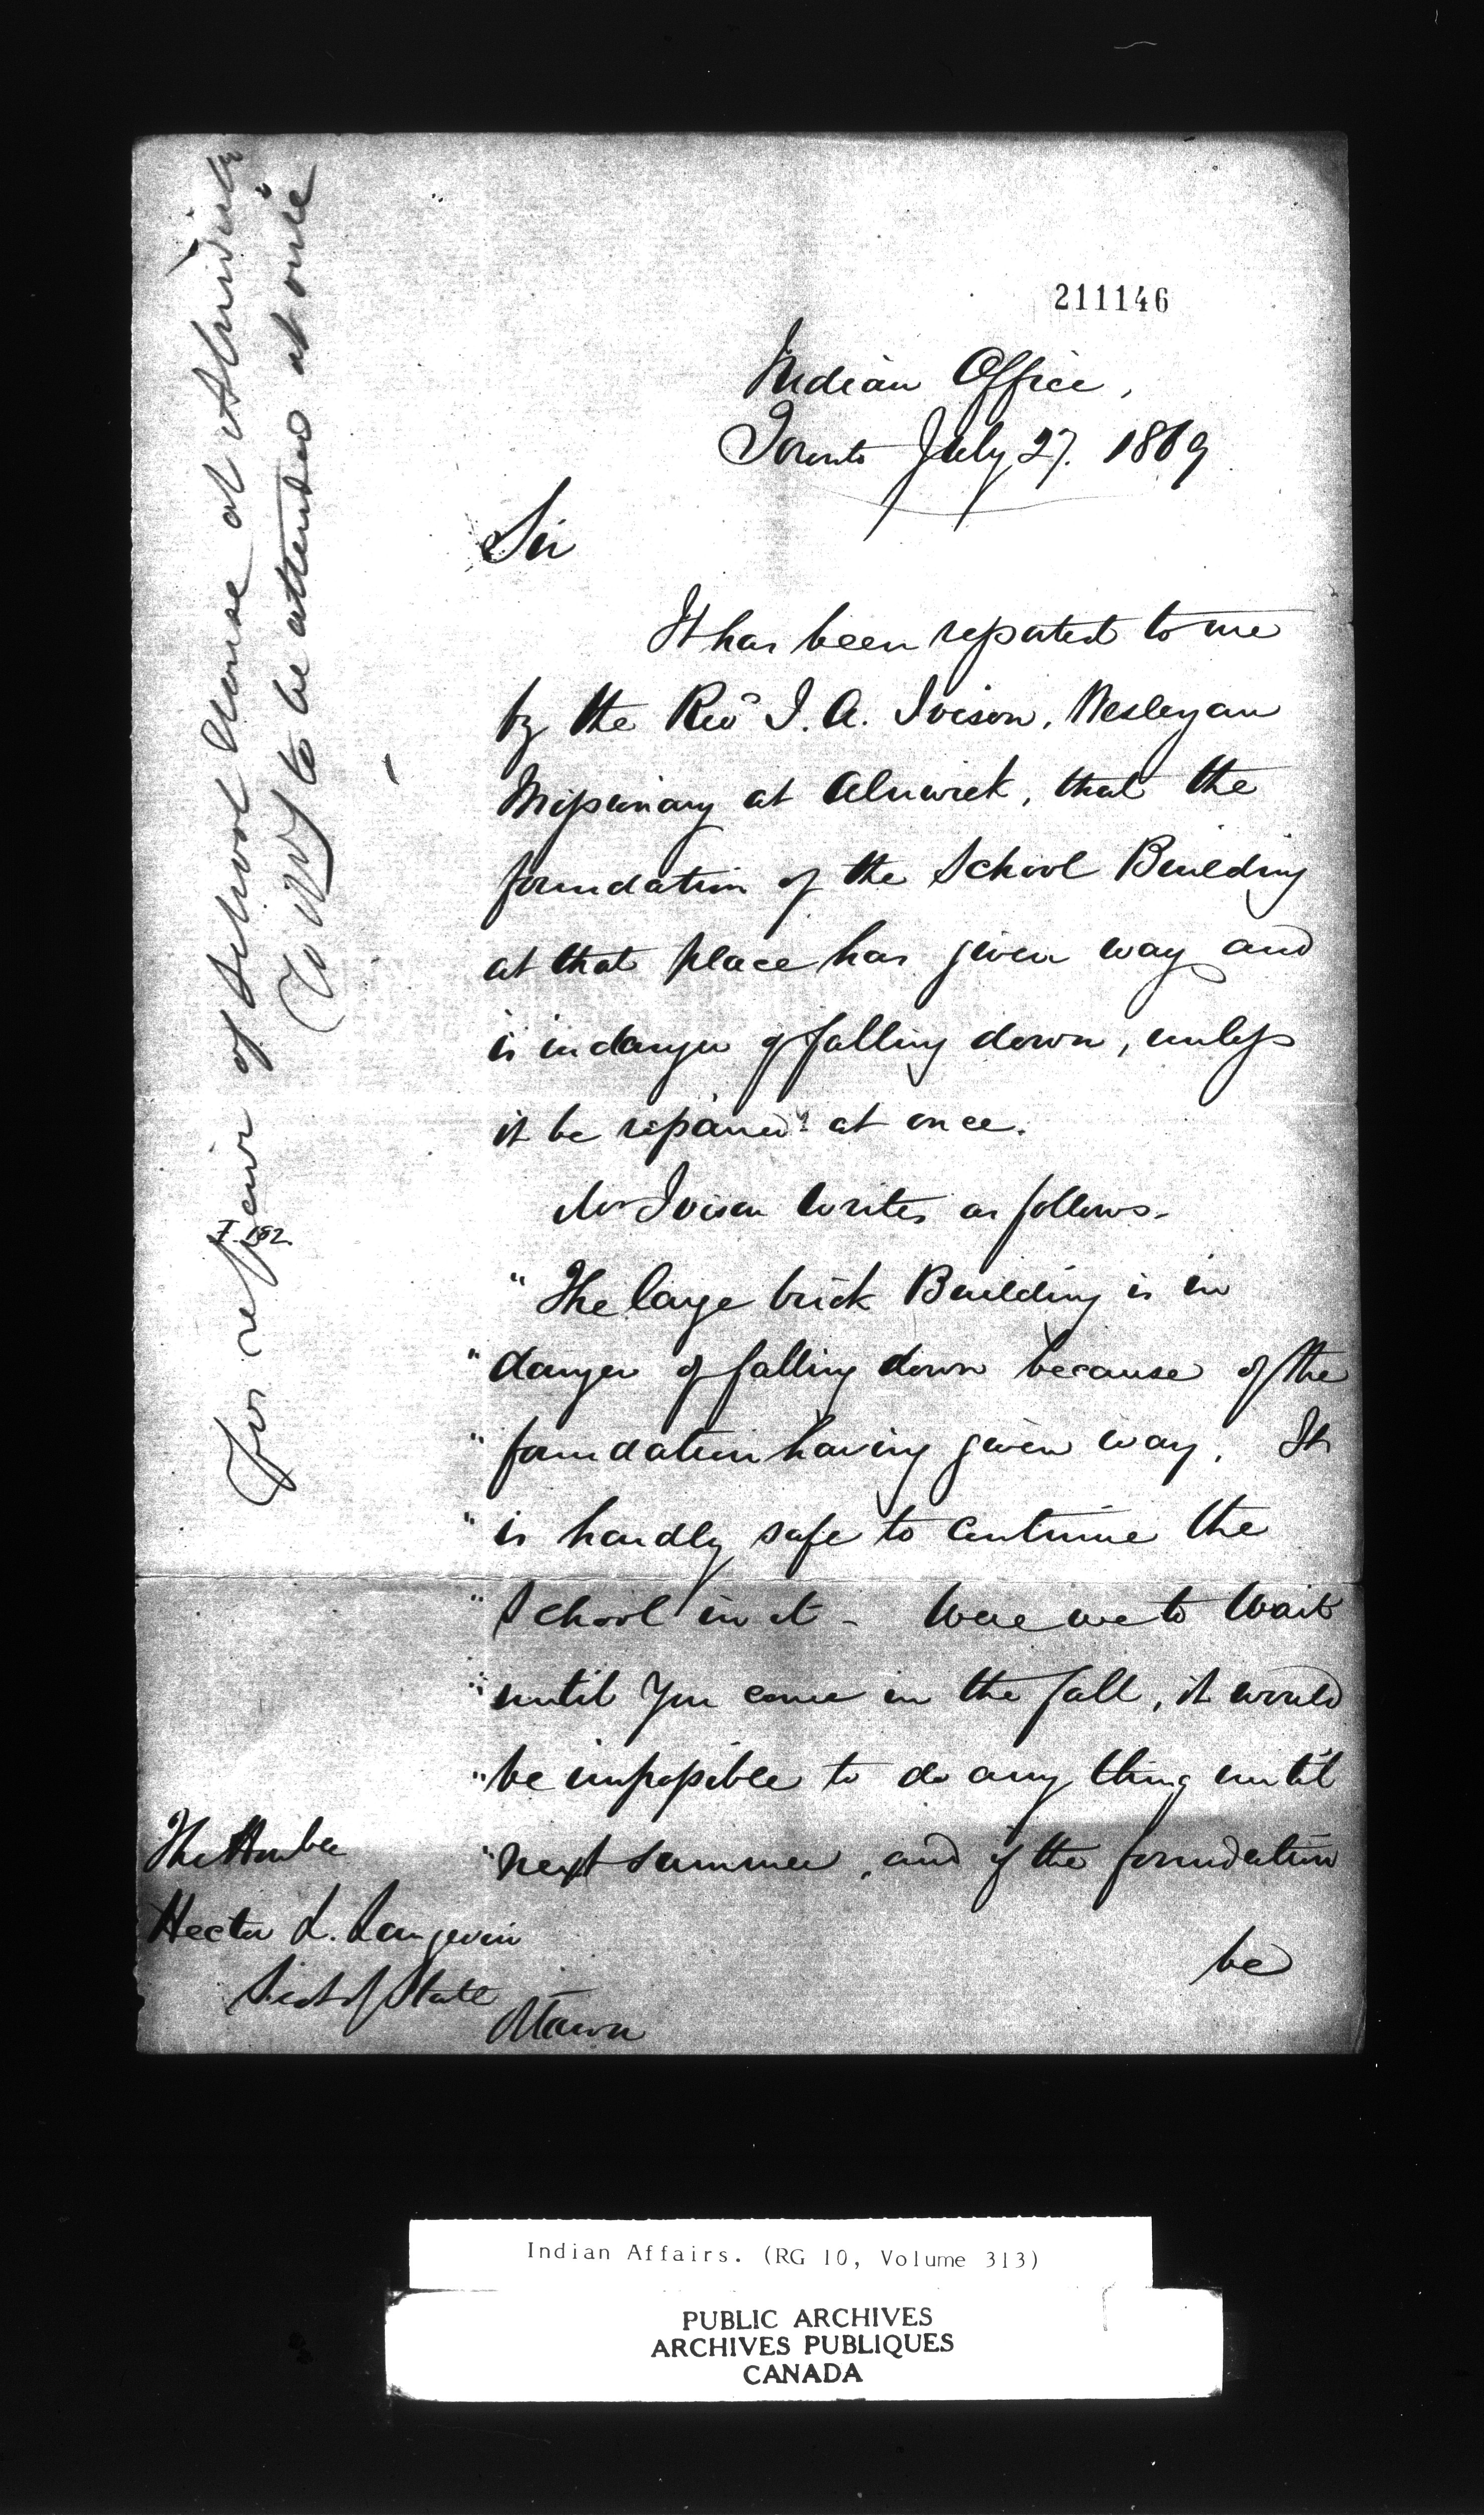 211146
Indian Office,
Toronto July 27. 1869
Sir
It has been reported to me
by the Revd I. A. Ivison, Wesleyan
Missionary at Alnwick, that the
foundation of the School Building
at that place has given way and
is in danger of falling down, unless
it be repaired at once.
Mr Ivison writes as follows-
" The large brick Building is in
" danger of falling down because of the
" foundation having given way. It
" is hardly safe to continue the
" School in it - Were we to wait
" until you come in the fall, it would
" be impossible to do any thing until
" next summer, and if the foundation
be
The Honble
Hector L. Langevin
Sect of State
Ottawa
For repair of School House at Alnwick
to be attended at once
I. 192.
Indian Affairs. (RG 10, Volume 313)
PUBLIC ARCHIVES
ARCHIVES PUBLIQUES
CANADA